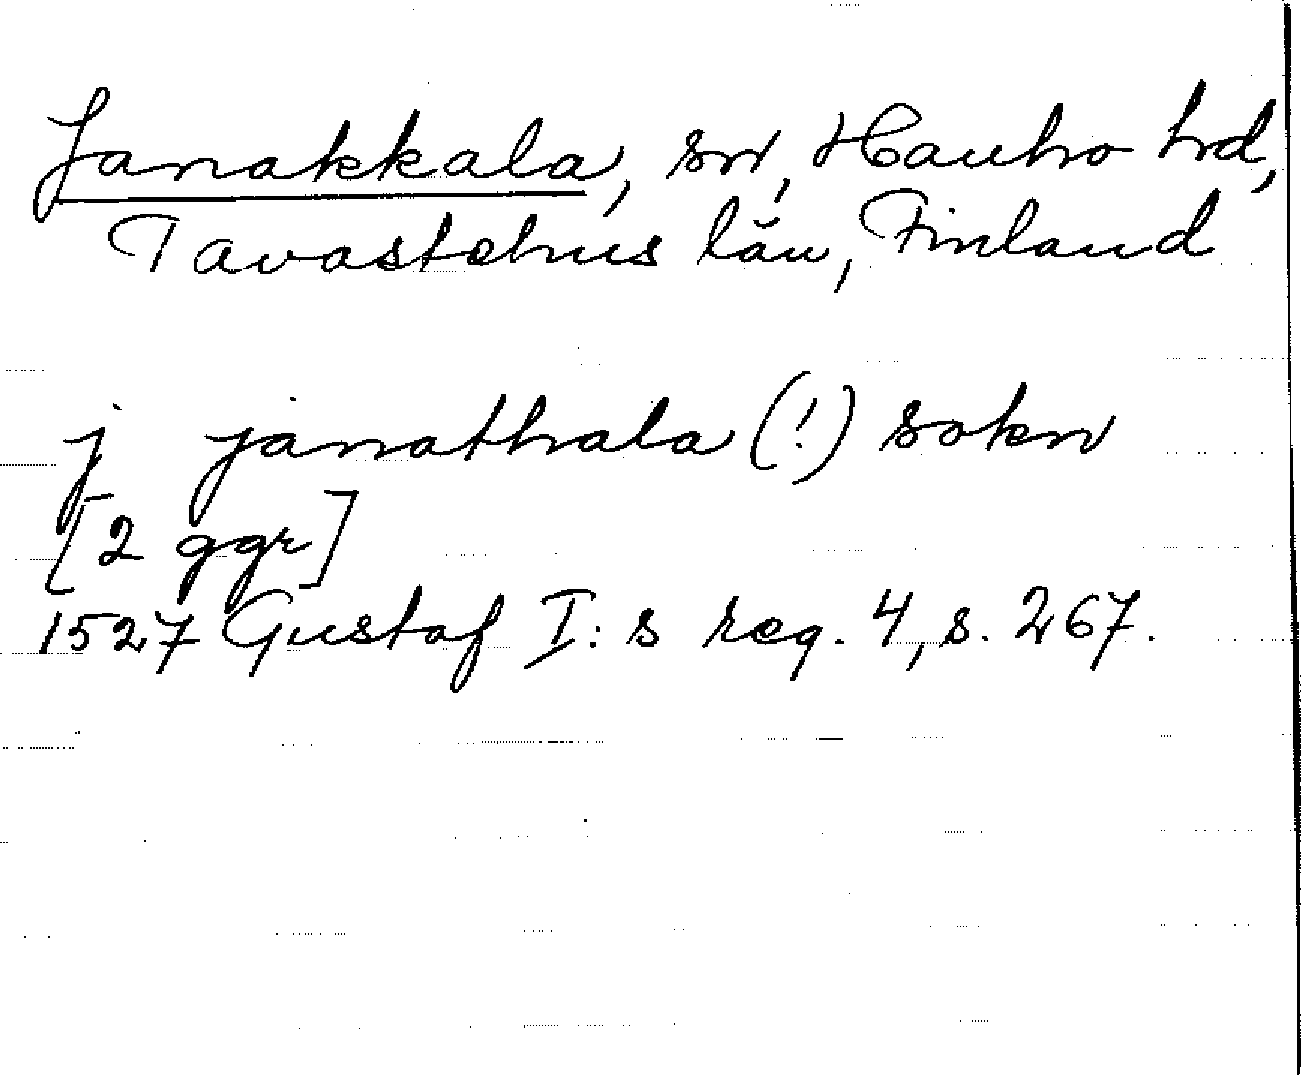 Janakkala, sn, Hauho hd,
Tavastehus län, Finland
j janathala (!) sokn
[2 ggr]
1527 Gustaf I:s reg. 4, s. 267.